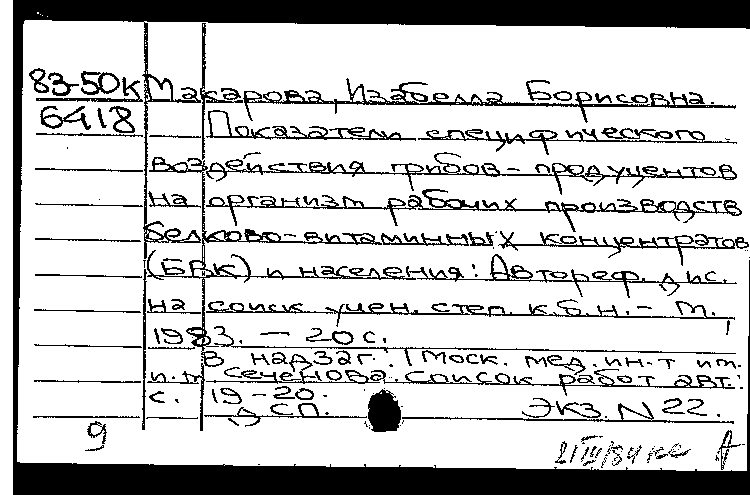 83-50К Макарова, Изабелла Борисовна.
6418 Показатели специфического
воздействия грибов-продуцентов
на организм рабочих производств
белково-витаминных концентратов
(БВК) и населения: Автореф. дис.
на соиск учен. степ. к.б.н. - М.,
1983. — 20 с.
В надзаг.: I Моск. мед. ин-т им.
И.М. Сеченова. Список работ авт.:
с. 19-20.
СП. ЭКЗ. N 22.
9